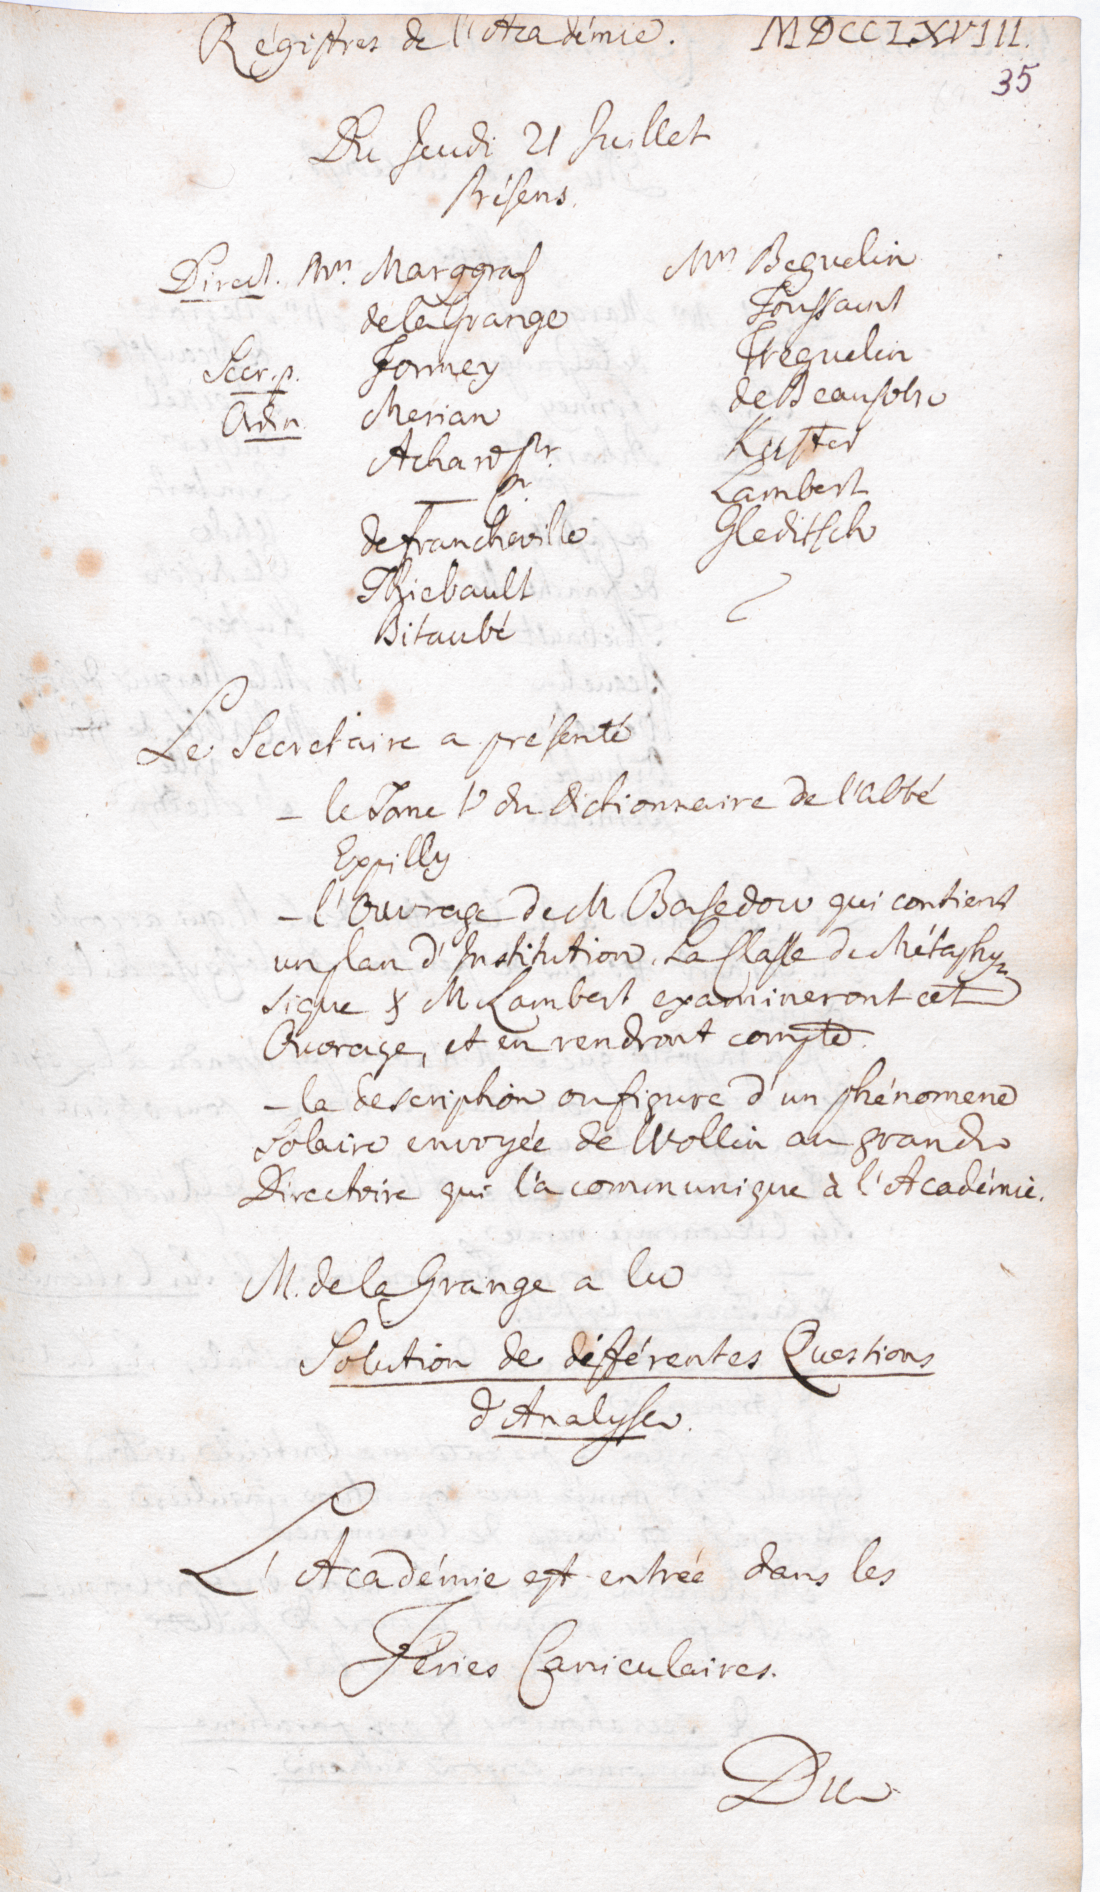 Régistres de l'Académie. MDCCLXVIII.
35
Du Jeudi 21 Juillet
Présens.
Direct. Mrs. Marggraf
de la Grange
Secr. p. Formey
Adn. Merian
Achard Sr.
— Jr.
de Francheville
Thiebault
Bitaubé
Mrs Beguelin
Toussaint
Jreguelin
de Beausobre
Kuster
Lambert
Gleditsch
Le Secretaire a présenté
– le Tome V du Dictionnaire de l'Abbé
Expilly
– l'Ouvrage de M Basedow qui contient
un plan d'Institution. La Classe de Métaphy-
sique & M Lambert examineront cet
Ouvrage, et en rendront compte.
– la description ou figure d'un phénomene
Solaire envoyée de Wollin au grand
Directoire qui l'a communiqué à l'Académie.
M. de la Grange a lu
Solution de différentes Questions
d'Analyse.
L'Académie est entrée dans les
Féries Caniculaires.
Du